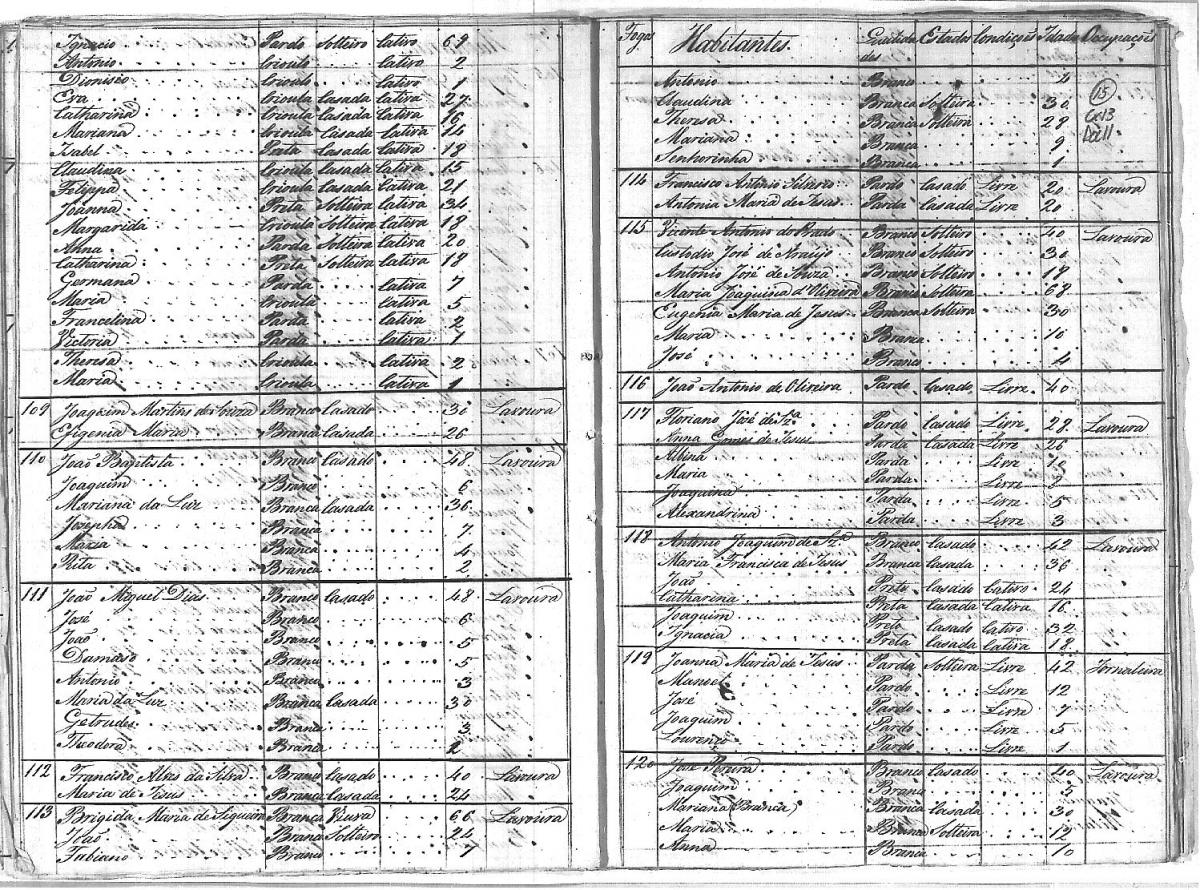 Ignacio Pardo Solteiro Cativo 69
Antonio Crioulo Cativo 2
Dionisio Crioulo Cativo 1
Eva Crioula Casada Cativa 27
Catharina Crioula Casada Cativa 16
Mariana Crioula Casada Cativa 14
Izabel Preta Casada Cativa 18
Claudina Crioula Casada Cativa 15
Felippa Crioula Casada Cativa 21
Joanna Preta Solteira Cativa 34
Margarida Crioula Solteira Cativa 18
Anna Parda Solteira Cativa 20
Catharina Preta Solteira Cativa 18
Germana Parda Cativa 7
Maria Crioula Cativa 5
Francelina Parda Cativa 2
Victoria Parda Cativa 1
Theresa Crioula Cativa 2
Maria Crioula Cativa 1
109 Joaquim Martins de Branco Casado 30 Lavoura
Efigenia Maria Branca Casada 26
110 João Baptista Branco Casado 48 Lavoura
Joaquim Branco 6
Mariana da Luz Branca Casada 36
Josepha Branca 7
Maria Branca 4
Rita Branca 2
111 João Miguel Dias Branco Casado 48 Lavoura
José Branco 6
João Branco 5
Damaso Branco 5
Antonio Branco 3
Maria da Luz Branca Casada 30
Getrudes Branca 3
Theodora Branca 2
112 Francisco Alves da Silva Branco Casado 40 Lavoura
Maria de Jesus Branca Casada 24
113 Brigida Maria de Siqueira Branca Viuva 66 Lavoura
João Branco Solteiro 24
Fabiano Branco 7
Fogos Habitantes Qualidades Estado Condições Idades Ocupações
Antonio Branco 4
Claudina Branca Solteira 30
Theresa Branca Solteira 28
Mariana Branca 9
Senhorinha Branca 1
15
Cx13
Doc11
114 Francisco Antonio Silverio Pardo Casado Livre 20 Lavoura
Antonia Maria de Jesus Parda Casada Livre 20
115 Vicente Antonio do Prado Branco Solteiro 40 Lavoura
Custodio José de Araujo Branco Solteiro 30
Antonio José de Souza Branco Solteiro 18
Maria Joaquina d'Oliveira Branca Solteira 68
Eugenia Maria de Jesus Branca Solteira 30
Maria Branca 10
José Branco 4
116 João Antonio de Oliveira Pardo Casado Livre 40
117 Floriano José de Sz.ª Pardo Casado Livre 29 Lavoura
Anna Gomes de Jesus Parda Casada Livre 26
Albina Parda Livre 10
Maria Parda Livre
Joaquina Parda Livre 5
Alexandrina Parda Livre 3
118 Antonio Joaquim de Sz.ª Branco Casado 42 Lavoura
Maria Francisca de Jesus Branca Casada 36
João Preto Casado Cativo 24
Catharina Preta Casada Cativa 16
Joaquim Preto Casado Cativo 32
Ignacia Preta Casada Cativa 18
119 Joanna Maria de Jesus Parda Solteira Livre 42 Jornaleira
Manoel Pardo Livre 12
José Pardo Livre 7
Joaquim Pardo Livre 5
Lourenço Pardo Livre 1
120 José Pereira Branco Casado 40 Lavoura
Joaquim Branco 5
Mariana (Branca) Branca Casada 30
Maria Branca Solteira 12
Anna Branca 10